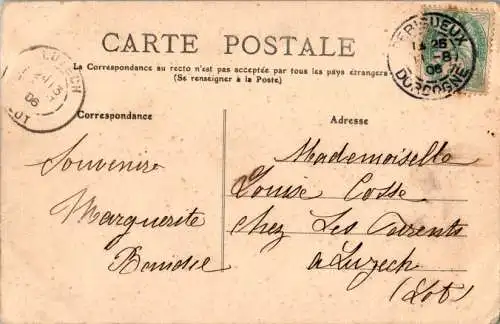 CARTE POSTALE
La Correspondance au recto n'est pas acceptée par tous les pays étrangers
(Se renseigner à la Poste)
PERIGUEUX
25
-8
06
DORDOGNE
LUZECH
06
LOT
Correspondance
Souvenir
Marguerite
Adresse
Mademoiselle
Louise Cosse
chez Ses Parents
à Luzech
(Lot)